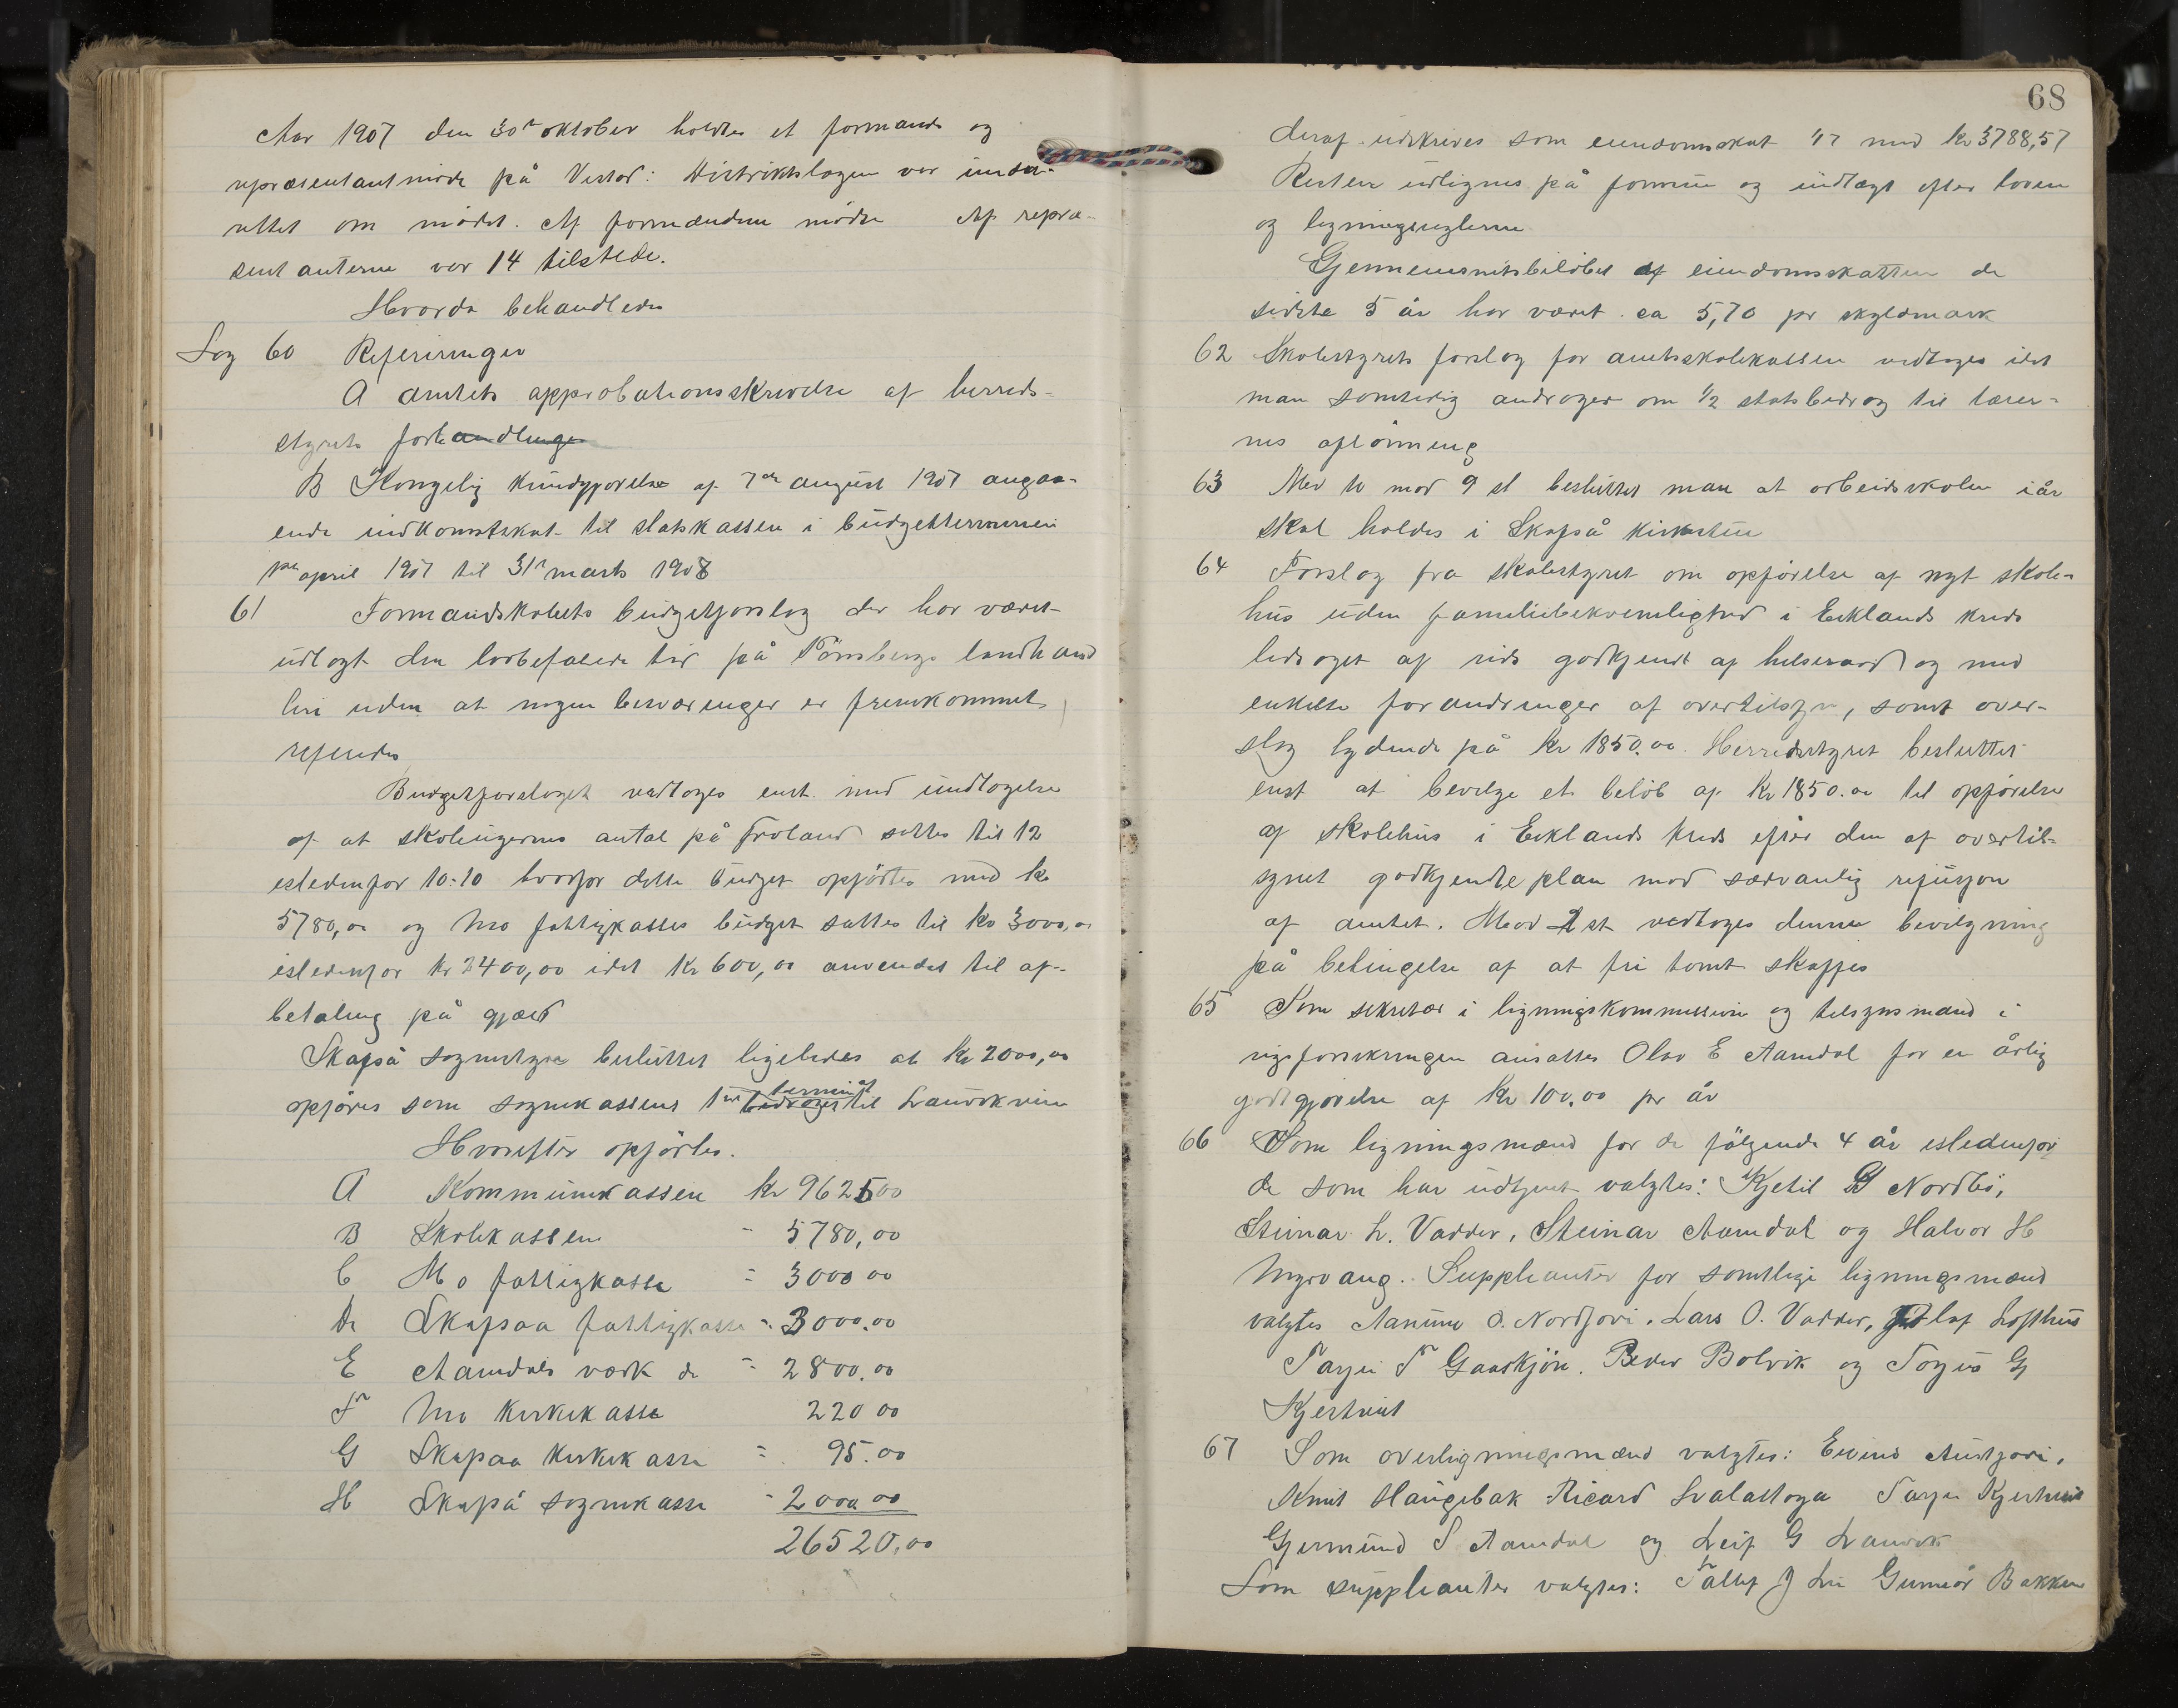 Aar 1907 den 30te oktober holdtes et formands og
repræsentantmöde på Vistad: Distriktslægen var under-
rettet om mödet. Af formændene mödte Af repræ-
sentanterne var 14 tilstede.
Hvorda behandledes
Sag 60 Refereringer
A amtets approbationsskrivelse af herreds-
styrets forhandlinger
B Kongelig kundgjörelse af 7de august 1907 angaa-
ende indkomstskat til statskassen i budgetterminen
1ste april 1907 til 31te marts 1908
61 Formandskabets budgetforslag der har været
udlagt den lovbefalede tid på Tönsbergs landhand
leri uden at nogen besværinger er fremkommet
refereredes
Budgetforslaget vedtoges enst. med undtagelse
af at skoleugernes antal på Froland sattes til 12
istedenfor 10:10 hvorfor dette budget opförtes med kr
5780,00 og Mo fattigkasses budget sattes til kr 3000,00
istedenfor kr 2400,00 idet kr 600,00 anvendes til af-
betaling på gjæld
Skafså sognestyre besluttet ligeledes at kr 2000,00
opföres som sognekassens 1ste bidrag termin af til Lauvikveien
Hvorefter opförtes.
A Kommunekassen kr 9625 00
B Skolekassen - 5780,00
C Mo fattigkasse - 3000 00
D Skafsaa fattigkasse - 3000.00
E Aamdals værk do - 2800.00
F Mo kirkekasse 220 00
G Skafsaa kirkekasse - 95.00
H Skafså sognekasse - 2000 00
26520,00
68
deraf udskrives som eiendomsskat 1/7 med kr 3788,57
Resten udlignes på formue og indtægt efter loven
og ligningsreglerne
Gjennemsnitsbelöbet af eiendomsskatten de
sidste 5 år har været ca 5,70 pr skyldmark
62 Skolestyrets forslag for amtsskolekassen vedtages idet
man samtidig andrager om 1/2 statsbidrag til lærer-
nes aflönning
63 Med 10 mod 9 st besluttet man at arbeidsskolen iår
skal holdes i Skafså kirkestue
64 Forslag fra skolestyret om opförelse af nyt skole-
hus uden familiebekvemlighed i Eiklands kreds
ledsaget af rids godkjendt af helseraad og med
enkelte forandringer af overtilsyn, samt over-
slag lydende på kr 1850.00. Herredsstyret besluttet
enst at bevilge et belöb af kr 1850.00 til opförelse
af skolehus i Eiklands kreds efter den af overtil-
synet godkjendte plan mod sædvanlig refusjon
af amtet. Mod 2 st vedtoges denne bevilgning
på betingelse af at fri tomt skaffes
65 Som sekretær i ligningskommission og tilsynsmand i
sygeforsikringen ansattes Olav E Aamdal for en årlig
godtgjörelse af kr 100,00 pr år
66 Som ligningsmænd for de fölgende 4 år istedenfor
de som har udtjent valgtes: Kjetil G Nordbö,
Steinar L. Vadder, Steinar Aamdal og Halvor H
Myrvang. Suppleanter for samtlige ligningsmænd
valgtes Aanund O. Nordjori, Lars O. Vadder, Olaf Lofthus
Tarjei T Gaaskjön. Peder Bolvik og Torjus G
Kjerstveit
67 Som overligningsmænd valgtes: Eivind Austjori,
Knut Haugebak Ricard Svalastoga Tarjei Kjerstveit
Gjermund S Aamdal og Leif G Lauvik
Som suppleanter valgtes: Tallef J Lie Gunnar Bakken